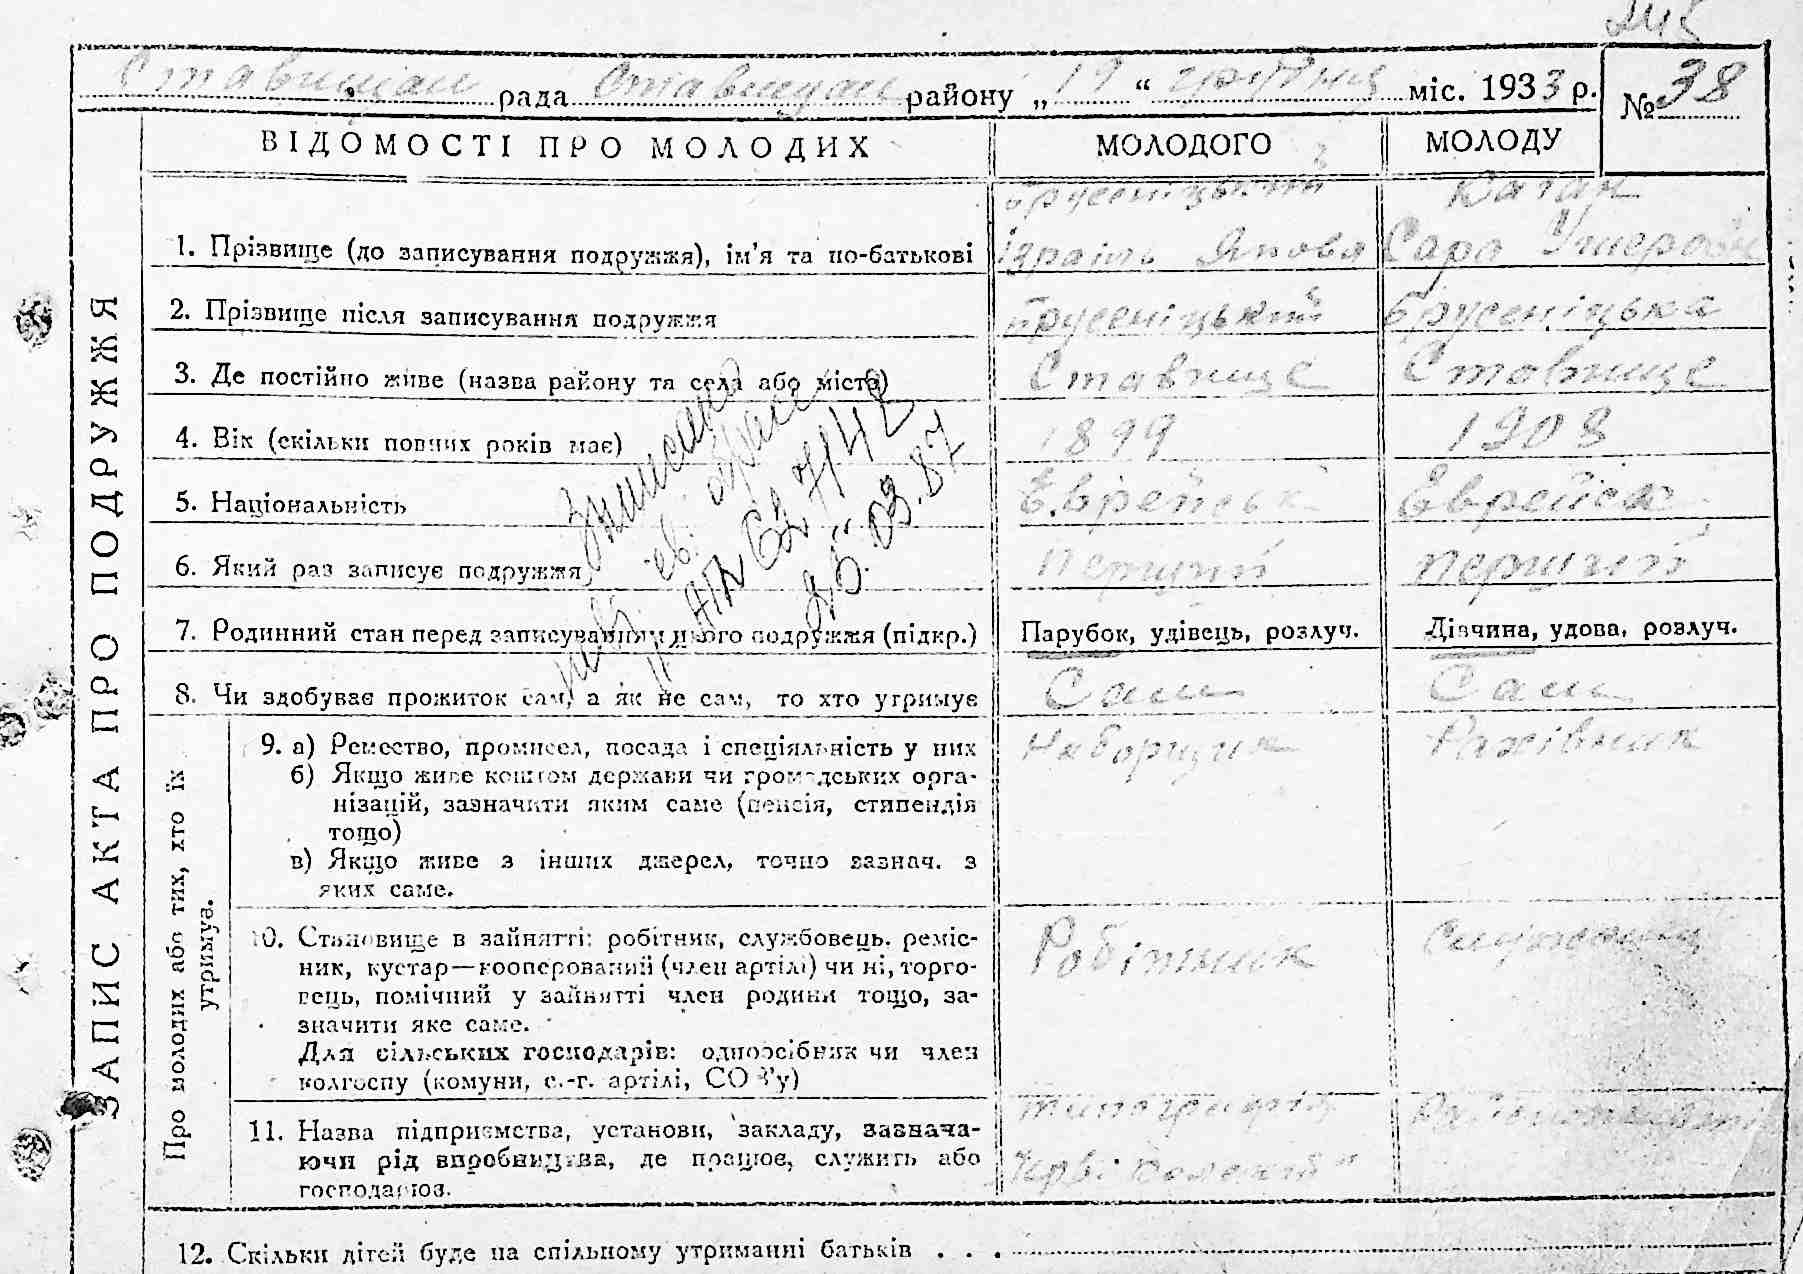 245
Ставищан рада Ставищан району „ 19 “ грудня міс. 1933 р.
№ 38
ВІДОМОСТІ ПРО МОЛОДИХ МОЛОДОГО МОЛОДУ
ЗАПИС АКТА ПРО ПОДРУЖЖЯ
Брусніцький Каган
1. Прізвище (до записування подружжя), ім'я та по-батькові Ізраіль Сара
2. Прізвище після записування подружжя Брусеніцький Брусеніцька
3. Де постійно живе (назва району та села або міста) Ставище Ставище
4. Вік (скільки повних років має) 1899 1908
5. Національність Еврейськ Еврейськ
6. Який раз записує подружжя Перший перший
7. Родинний стан перед записуванням цього подружжя (підкр.) Парубок, удівець, розлуч. Дівчина, удова, розлуч.
8. Чи здобуває прожиток сам, а як не сам, то хто утримує Сам Сам
Про молодих або тих, хто їх
утримує.
9. а) Ремество, промисел, посада і спеціяльність у них Наборщик Рахівник
б) Якщо живе коштом держави чи громадських орга-
нізацій, зазначити яким саме (пенсія, стипендія
тощо)
в) Якщо живе з інших джерел, точно зазнач. з
яких саме.
10. Становище в зайнятті: робітник, службовець, реміс- Робітник
ник, кустар—кооперований (член артілі) чи ні, торго-
вець, помічний у зайнятті член родини тощо, за-
значити яке саме.
Для сільських господарів: одноосібник чи член
колгоспу (комуни, с.-г. артілі, СОЗ'у)
11. Назва підприємства, установи, закладу, зазнача- типографія
ючи рід виробництва, де працює, служить або
господарює.
12. Скільки дітей буде на спільному утриманні батьків . . .
627142
25.03.87